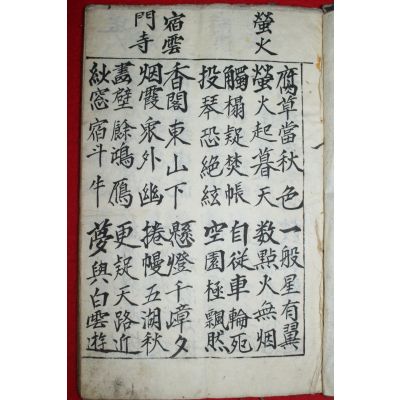 螢火
腐草當秋色 一般星有翼
螢火起暮天 数點火無烟
觸榻疑焚帳 自從車輪死
投琴恐絶絃 空園極飄然
宿雲
門寺
香閣東山下 懸燈千嶂夕
烟霞象外幽 捲幔五湖秋
畵壁餘鴻鴈 更疑天路近
紗窓宿斗牛 夢與白雲遊